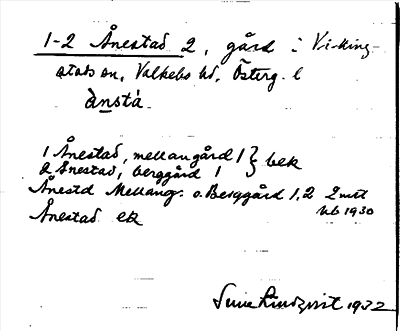 1-2 Ånestad 2, gård i Viking-
stads sn, Valkebo hd, Österg. l
ànstá.
1 Ånestad, mellangård 1 } bek
2 Ånestad, berggård 1
Ånestd Mellang. o. Berggård 1, 2
Ub 1930
Ånestad ek
Sune Lindqvist 1932